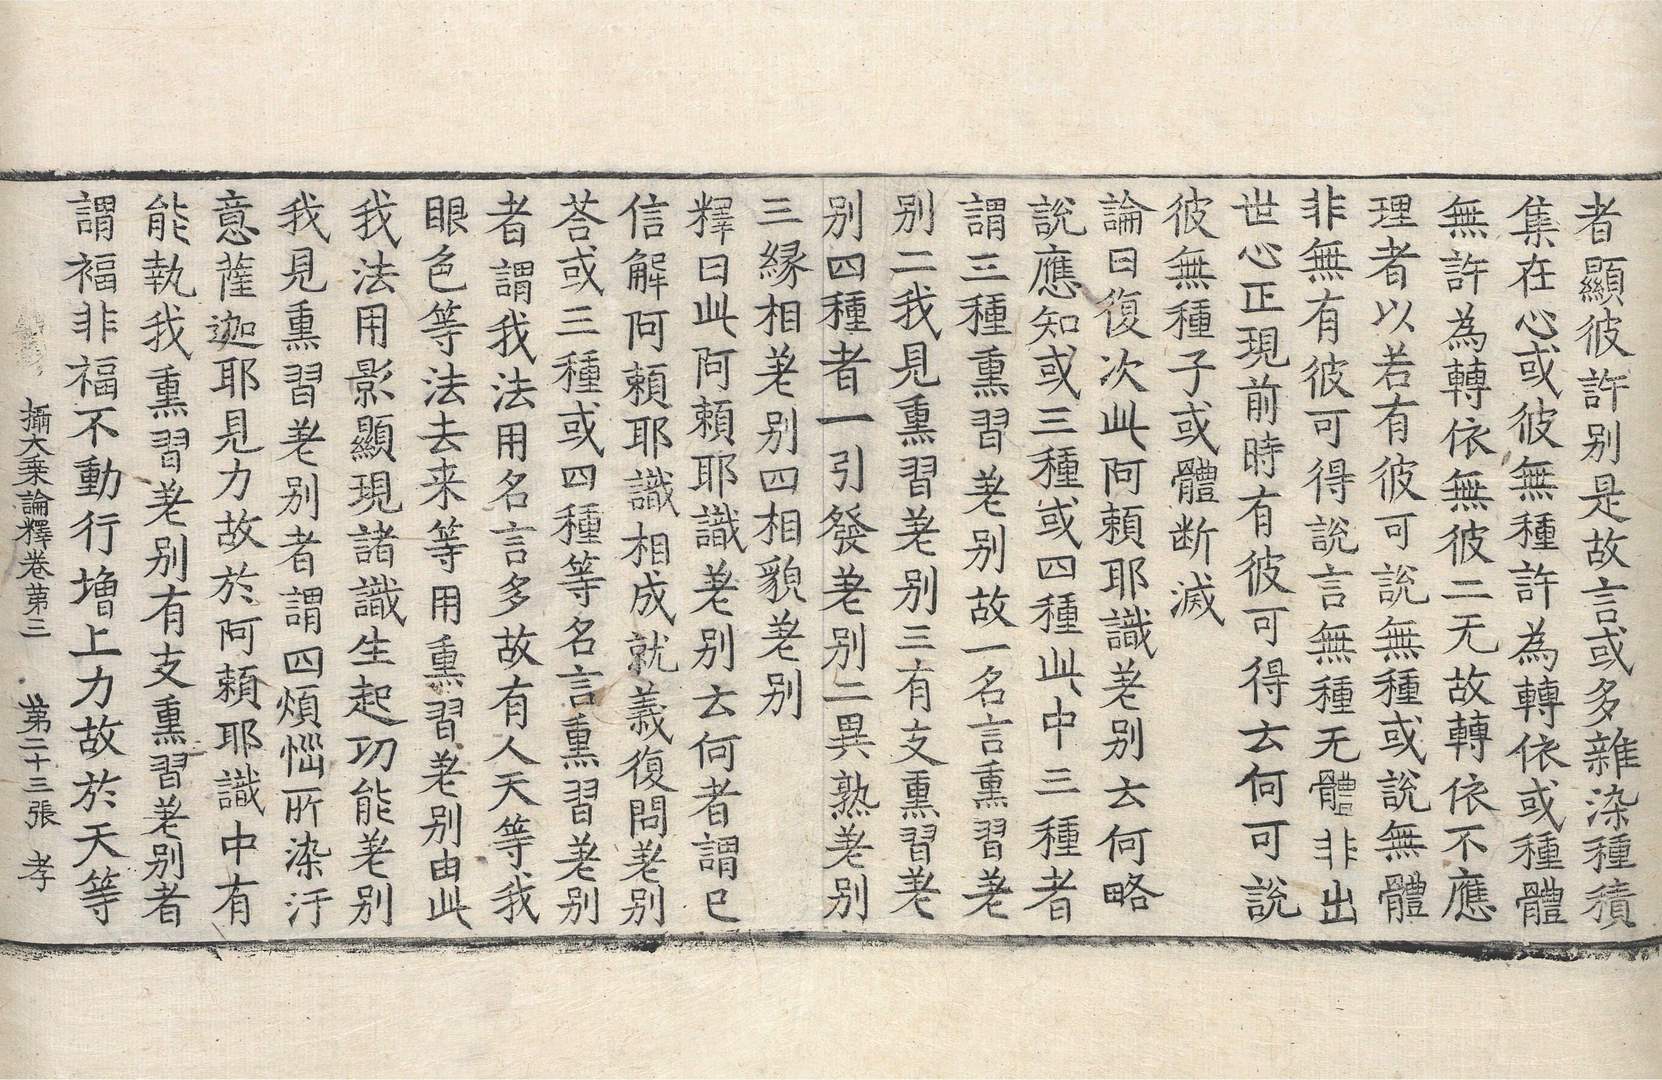 者顯彼許别是故言或多雜染種積
集在心或彼無種許為轉依或種體
無許為轉依無彼二无故轉依不應
理者以若有彼可說無種或說無體
非無有彼可得說言無種无體非出
世心正現前時有彼可得去何可說
彼無種子或體断滅
論曰復次此阿賴耶識差别去何略
說應知或三種或四種此中三種者
謂三種熏習差别故一名言熏習差
别二我見熏習差别三有支熏習差
别四種者一引發差别二異熟差别
三緣相差别四相貌差别
釋曰此阿賴耶識差别去何者謂已
信解阿賴耶識相成就義復問差别
荅或三種或四種等名言熏習差别
者謂我法用名言多故有人天等我
眼色等法去来等用熏習差别由此
我法用影顯現諸識生起㓛能差别
我見熏習差别者謂四煩惱所染汙
意薩迦耶見力故於阿賴耶識中有
能執我熏習差别有支熏習差别者
謂福非福不動行增上力故於天等
攝大乗論釋卷第三 第二十三張 孝